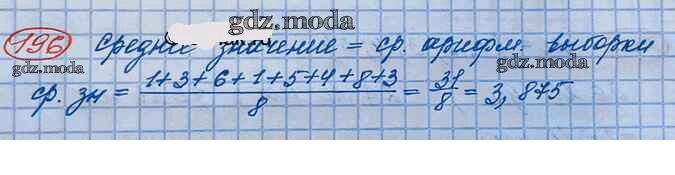 gdz.moda
196 Среднее значение = ср. арифм. выборки
gdz.moda
gdz.moda
ср. зн = (1+3+6+1+5+4+8+3)/8 = 31/8 = 3,875
gdz.moda